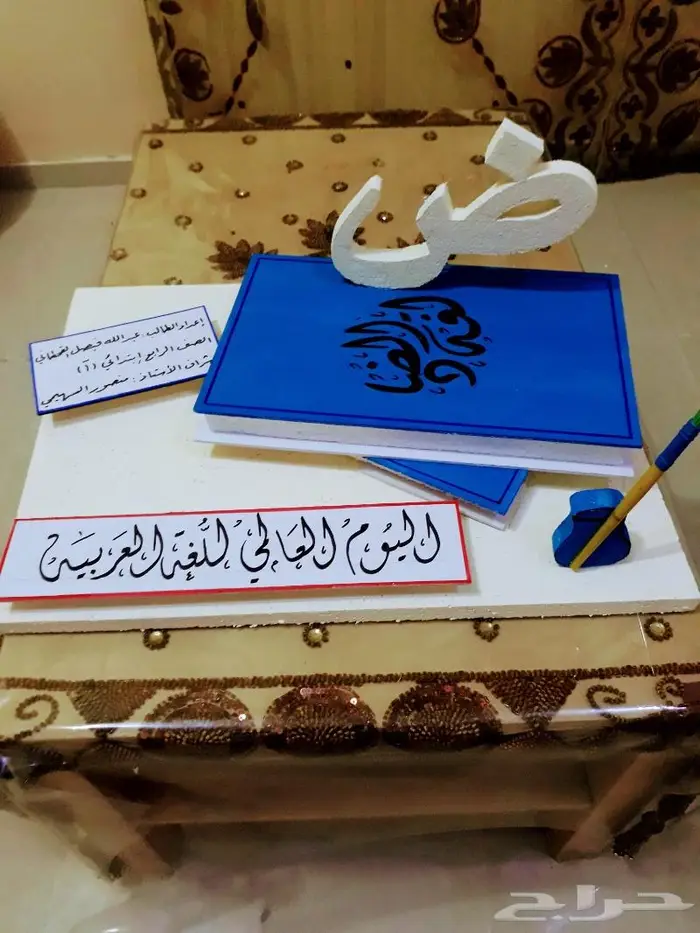 ض
لغة الضاد
إعداد الطالب: عبدالله فيصل
الصف الرابع إبتدائي (أ)
إشراف الأستاذ: منصور السهيمي
اليوم العالمي للغة العربية
حراج